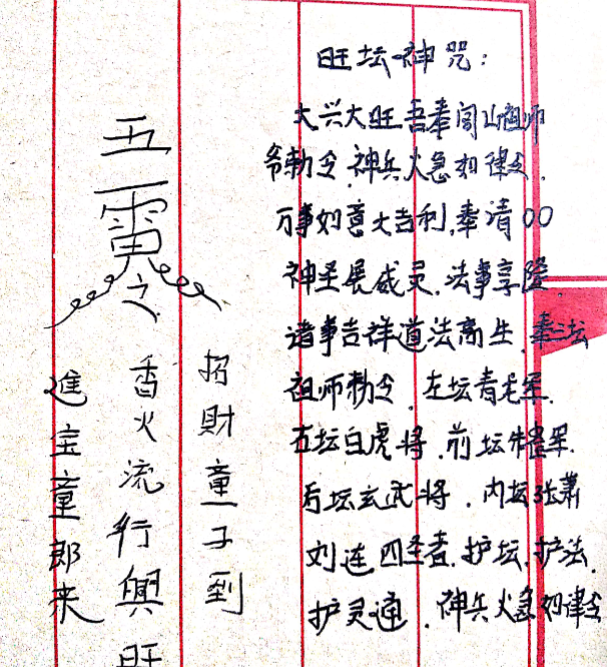 旺坛神咒：
大兴大旺吾奉闾山祖师
爷勅令.神兵火急如律令.
万事如意大吉利,奉请OO
神圣展威灵.法事享隆.
诸事吉祥道法高生.奉三坛
祖师勅令.左坛青龙军.
右坛白虎将.前坛朱雀军.
后坛玄武将.内坛张萧
刘连四圣者.护坛.护法.
护灵通.神兵火急如律令
五
之
招財童子到
香火流行興旺
進宝童郎来